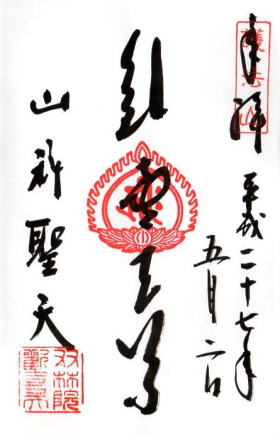 奉拝
平成二十七年
五月二日
歓喜天尊
山科聖天
双林院